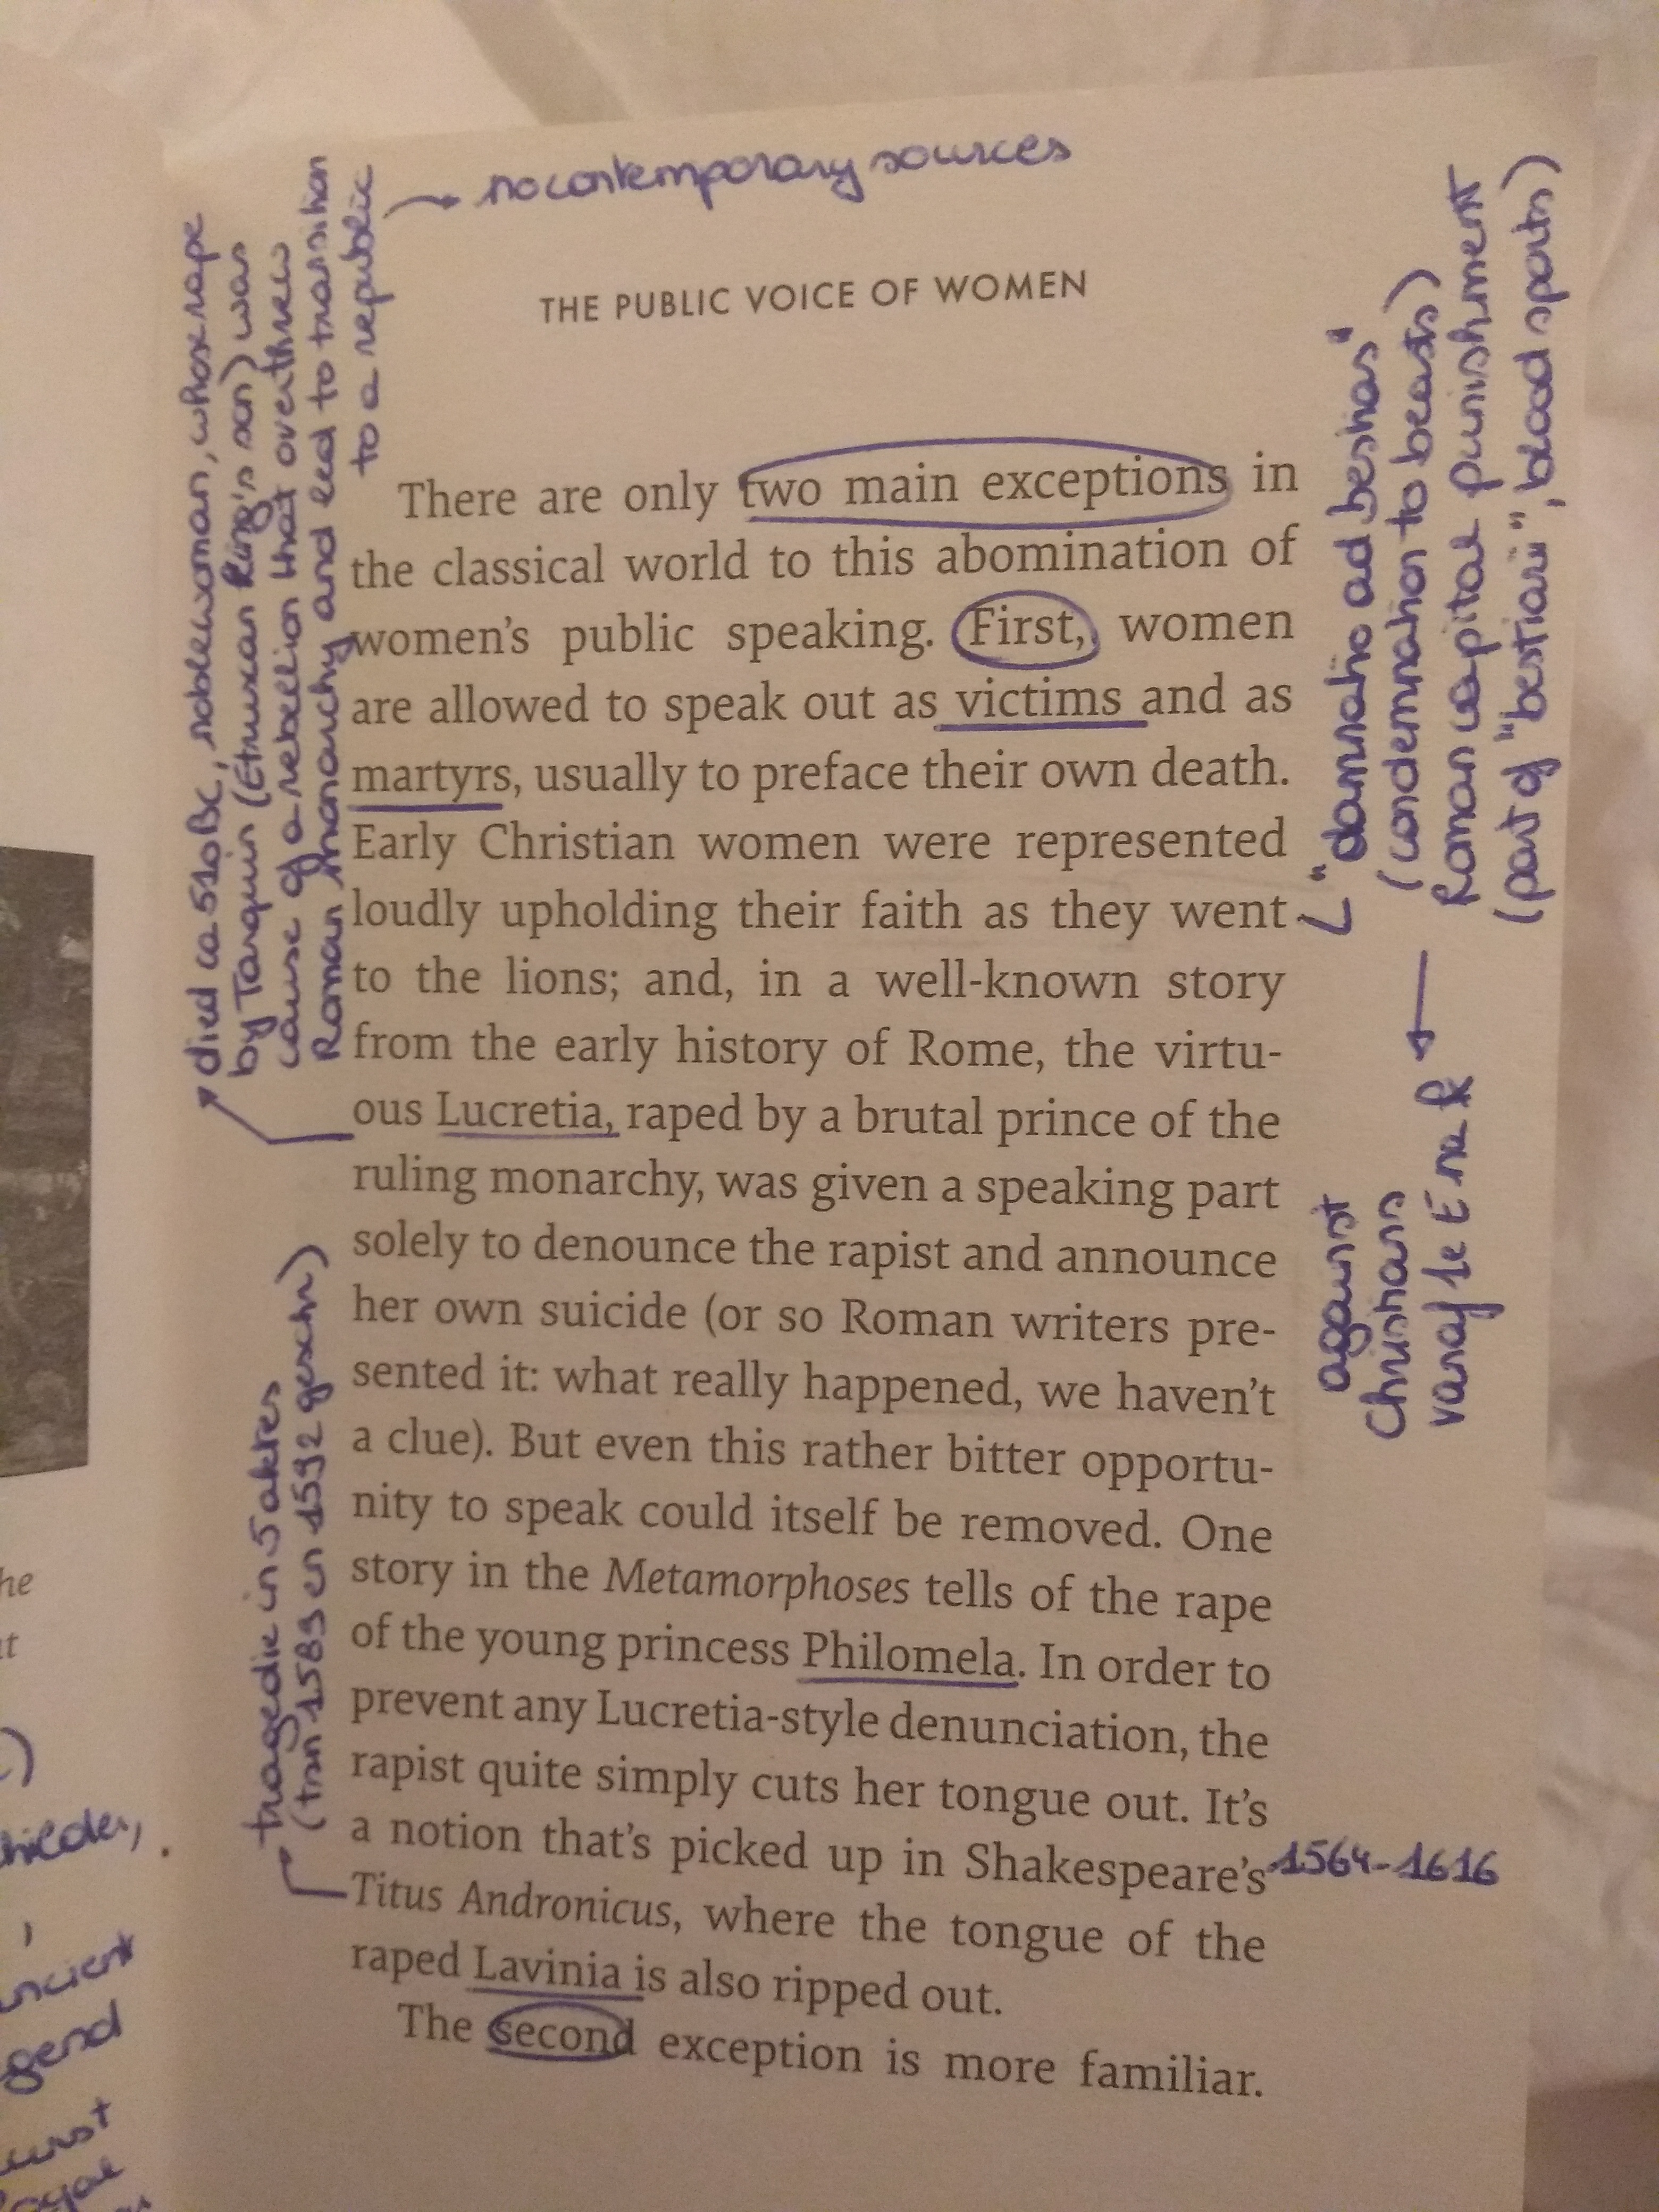 → no contemporary sources
THE PUBLIC VOICE OF WOMEN
There are only two main exceptions in
the classical world to this abomination of
women's public speaking. First, women
are allowed to speak out as victims and as
martyrs, usually to preface their own death.
Early Christian women were represented
loudly upholding their faith as they went
to the lions; and, in a well-known story
from the early history of Rome, the virtu-
ous Lucretia, raped by a brutal prince of the
ruling monarchy, was given a speaking part
solely to denounce the rapist and announce
her own suicide (or so Roman writers pre-
sented it: what really happened, we haven't
a clue). But even this rather bitter opportu-
nity to speak could itself be removed. One
story in the Metamorphoses tells of the rape
of the young princess Philomela. In order to
prevent any Lucretia-style denunciation, the
rapist quite simply cuts her tongue out. It's
a notion that's picked up in Shakespeare's
Titus Andronicus, where the tongue of the
raped Lavinia is also ripped out.
The second exception is more familiar.
died ca 510 BC, noblewoman, whose rape
by Tarquin (Etruscan King's son) was
cause of a rebellion that overthrew
Roman monarchy and led to transition
to a republic
tragedie in 5 aktes
(tsn 1589 en 1592 geschr)
"damnatio ad bestias"
(condemnation to beasts)
Roman capital punishment
(part of "bestiarii", blood sports)
against
Christians
vanaf 1e E na
1564-1616
he
ncient
gend